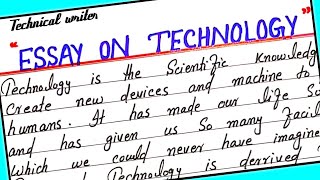 Technical writer
"ESSAY ON TECHNOLOGY"
Technology is the Scientific Knowledg
Create new devices and machine to
humans. It has made our life So
and has given us So many Facili
which we could never have imagine
Technology is derrived